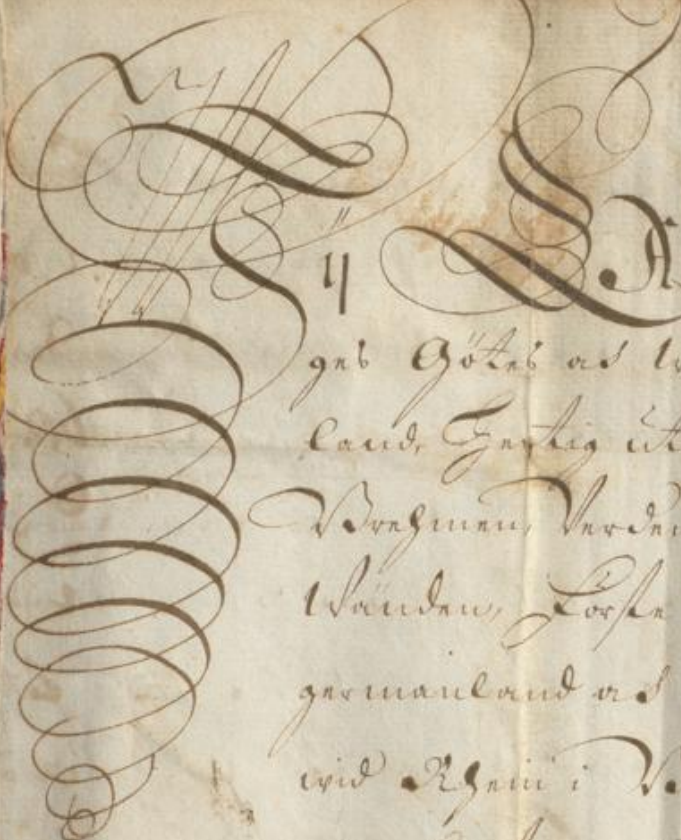 Wij CA
ges Götes ac W
land, Hertig ut
Brehmen, Verde
Wänden, Förste
germanland ac
wid Rhein i B